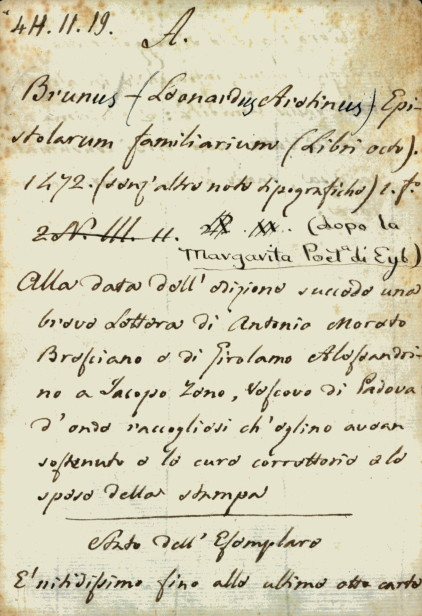 4H. II. 19.
A.
Brunus (Leonardus Aretinus) Epi-
stolarum familiarium (Libri octo).
1472. (senz' altre note tipografiche) 1. fo.
2 N. III. 11. (dopo la
Margarita Poet.a di Eyb)
Alla data dell' edizione succede una
breve Lettera di Antonio Morato
Bresciano e di Girolamo Alessandri-
no a Jacopo Zeno, Vescovo di Padova
d' onde raccogliesi ch' eglino avean
sostenuto e le cure correttorie e le
spese della stampa
Stato dell' Esemplare
E' nitidissimo fino alle ultime otto carte